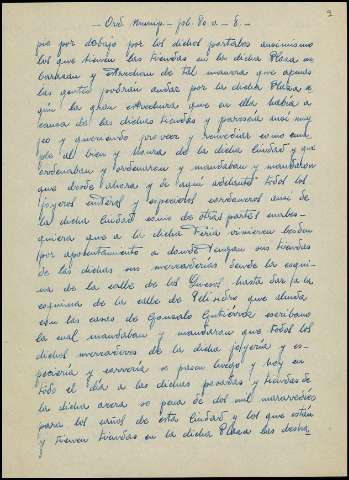 9
- Ord. Munip. - fol. 80 v - 8. -
pie por debajo por los dichos portales ansimismo
los que tienen las tiendas en la dicha Plaza em-
barazan y estrechan de tal manera que apenas
las gentes podrian andar por la dicha Plaza se-
gún la gran estrechura que en ella había a
causa de las dichas tiendas y parescia ansi muy
feo y queriendo proveer y remediar como cum-
ple al bien y honra de la dicha Ciudad y que
ordenaban y ordenaron y mandaban y mandaron
que desde ahora y de aqui adelante todos los
joyeros enteros y especieros cordoneros ansi de
la dicha Ciudad como de otras partes cuales-
quiera que a la dicha Feria vinieren hayan
por aposentamiento a donde tengan sus tiendas
de las dichas sus mercaderias desde la esqui-
na de la calle de los hasta dar a la
esquina de la calle de que alinda
con las casas de Gonzalo Gutiérrez escribano
la cual mandaban y mandaron que todos los
dichos mercaderes de la dicha joyería y es-
peciería y se pasen luego y hoy en
todo el dia a las dichas posadas y tiendas de
la dicha acera so pena de dos mil maravedises
para los de esta Ciudad y los que están
y tienen tiendas en la dicha Plaza las desha-